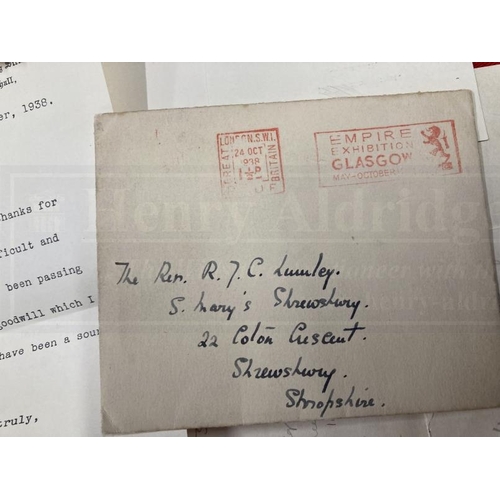 er, 1938.
hanks for
ficult and
been passing
goodwill which I
have been a sour
truly,
LONDON.S.W.1.
GREAT
24 OCT
1938
BRITAIN
EMPIRE
EXHIBITION
GLASGOW
MAY-OCTOBER
1938
The Rev. R. J. C. Lumley.
S. Mary's Shrewsbury.
22 Coton Crescent.
Shrewsbury.
Shropshire.
Henry Aldridge